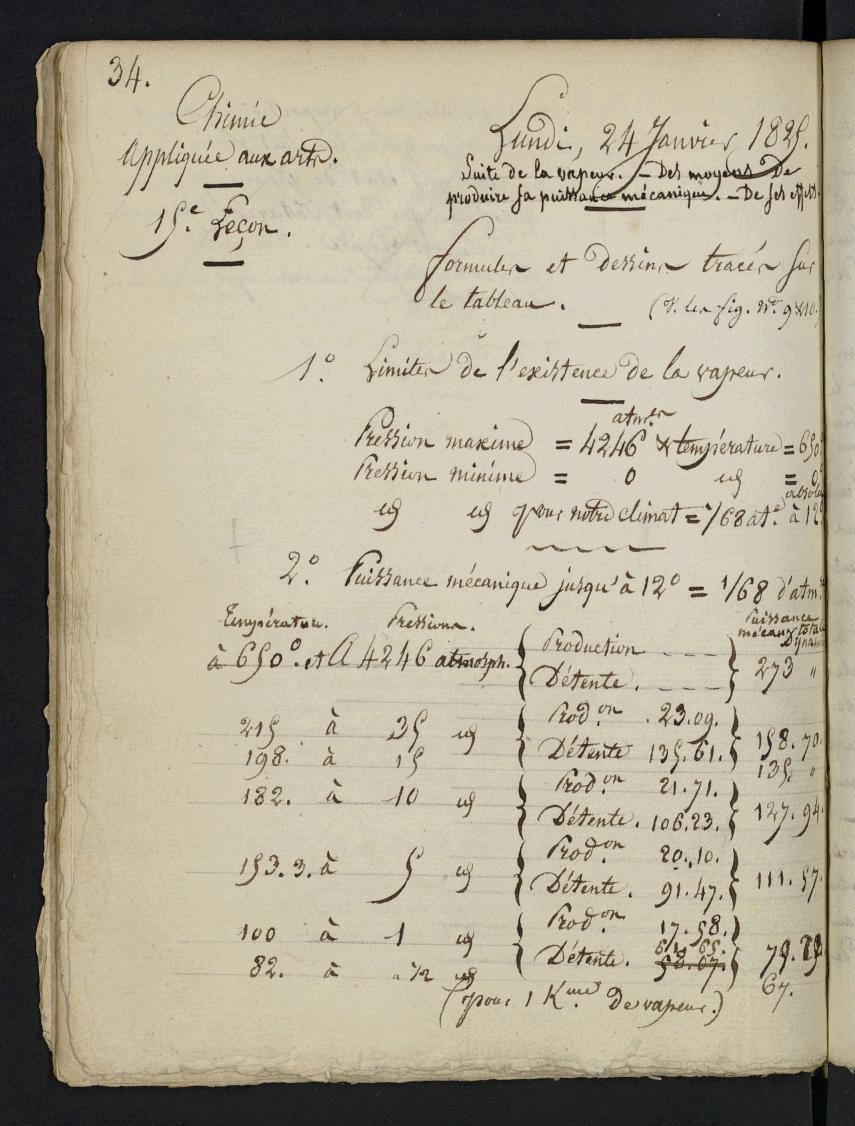 34.
Chimie
Appliquée aux arts.
15.e Leçon.
Lundi, 24 Janvier 1825.
Suite de la vapeur. – Des moyens De
produire sa puissance mécanique. – De ses effets.
formules et Dessins tracés sur
le tableau. (V. les fig. Nos. 9 & 10.)
1.o Limites de l'existence de la vapeur.
atm.res
Pression maxime = 4246 & température = 650°
Pression minime = 0 id = 0°
absolu
id id pour notre climat = 1/68 at.e à 12°
2.o Puissance mécanique jusqu'à 12° = 1/68 d'atm.
Température. Pressions. Puissance
mécan. totale
Dynam
à 650°. et A 4246 atmosph. { Production } 273 "
Détente.
215 à 35 id { Prod.on 23.09. } 158.70.
Détente 135.61.
198. à 15 135. "
182. à 10 id { Prod.on 21.71. } 127.94.
Détente. 106.23.
153.3. à 5 id { Prod.on 20.10. } 111.57.
Détente. 91.47.
100 à 1 id { Prod.on 17.58. }
61.65.
Détente. 58.67. 79.
82. à " 1/2 id 67.
(pour 1 K.me De vapeur.)